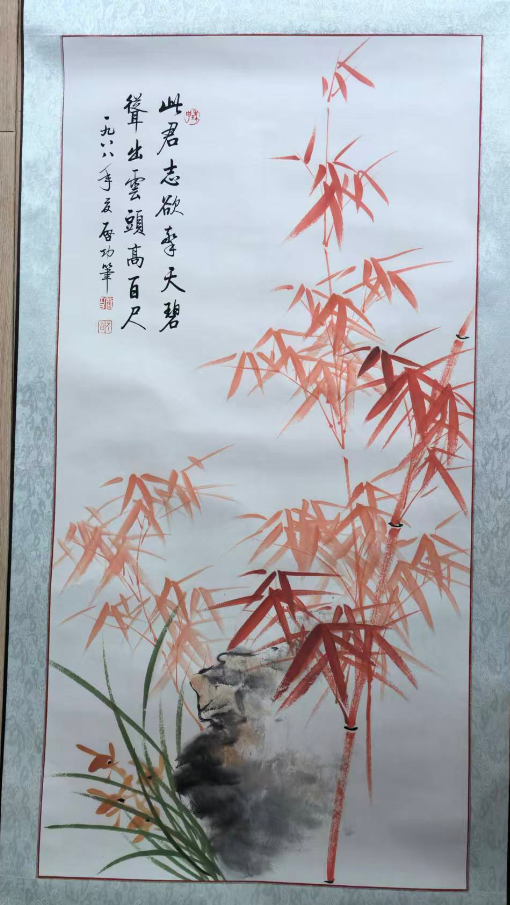 此君志欲摩天碧
聳出雲頭高百尺
一九八八年夏启功筆